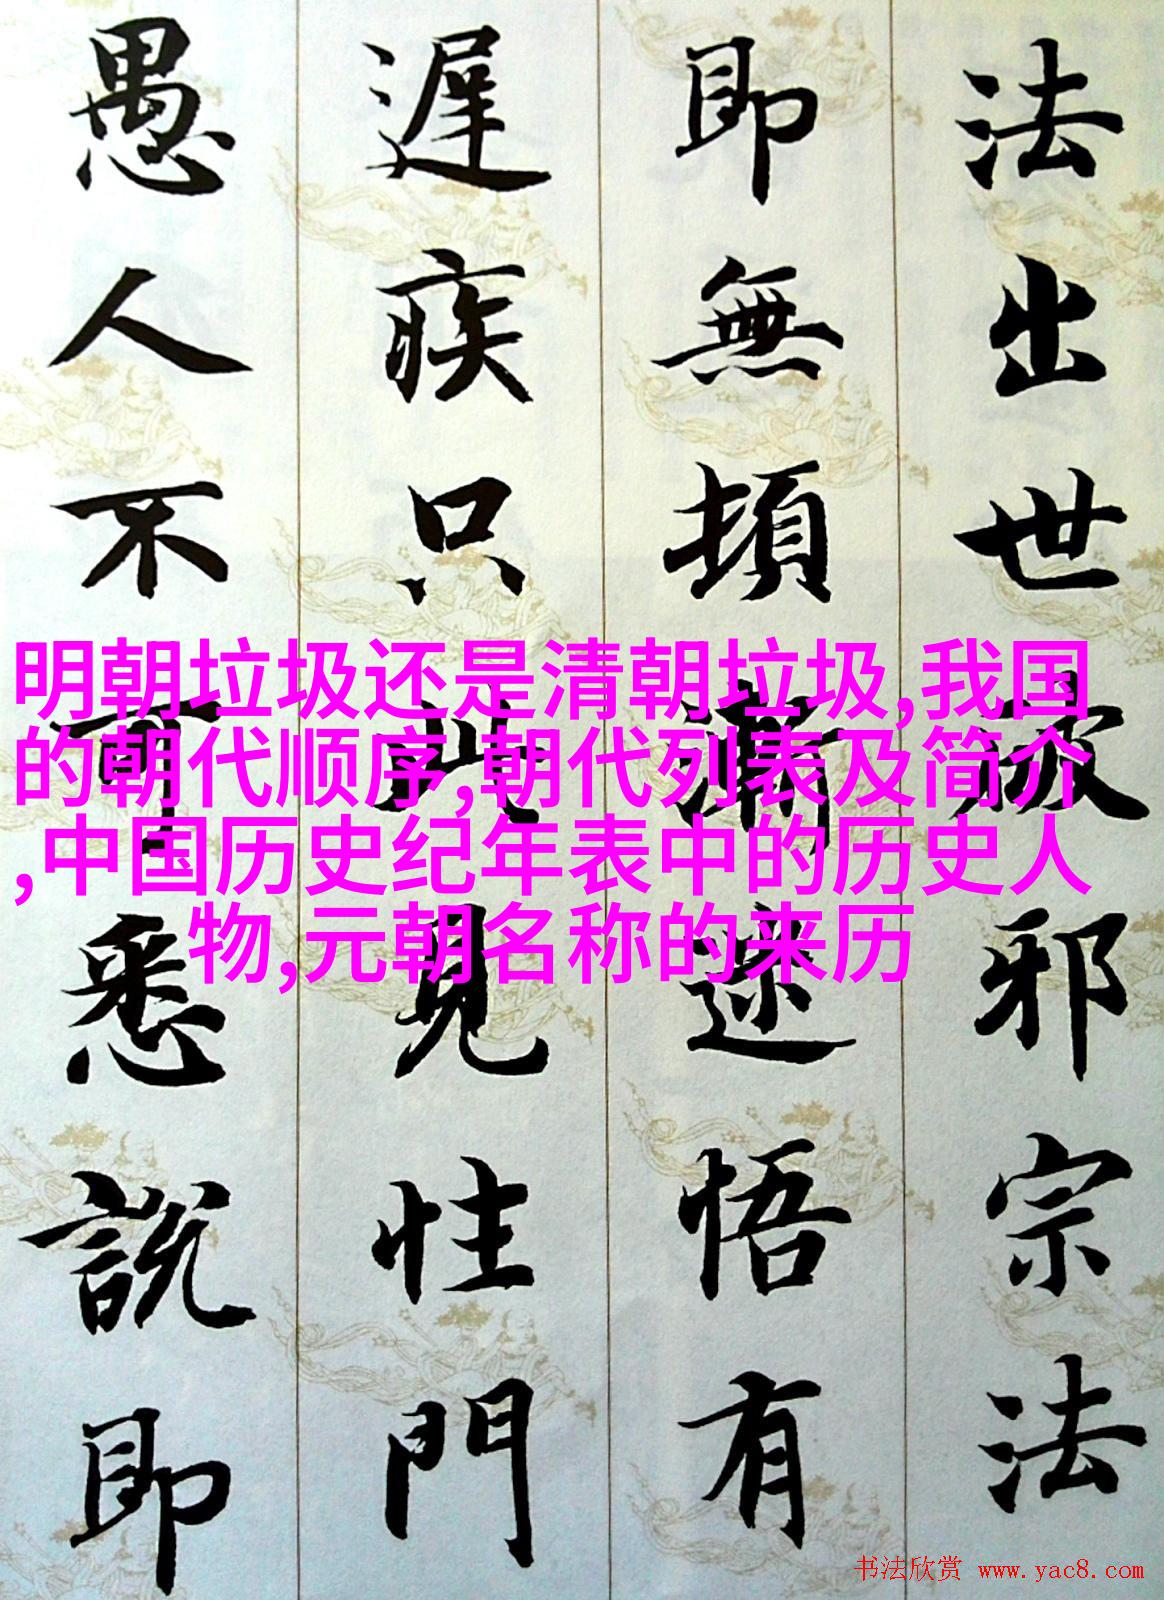 法出世破邪宗法
即無頓漸迷悟有
遲疾只此見性門
愚人不可悉說即
明朝垃圾还是清朝垃圾,我国
的朝代顺序,朝代列表及简介
,中国历史纪年表中的历史人
物,元朝名称的来历
书法欣赏 www.yac8.com